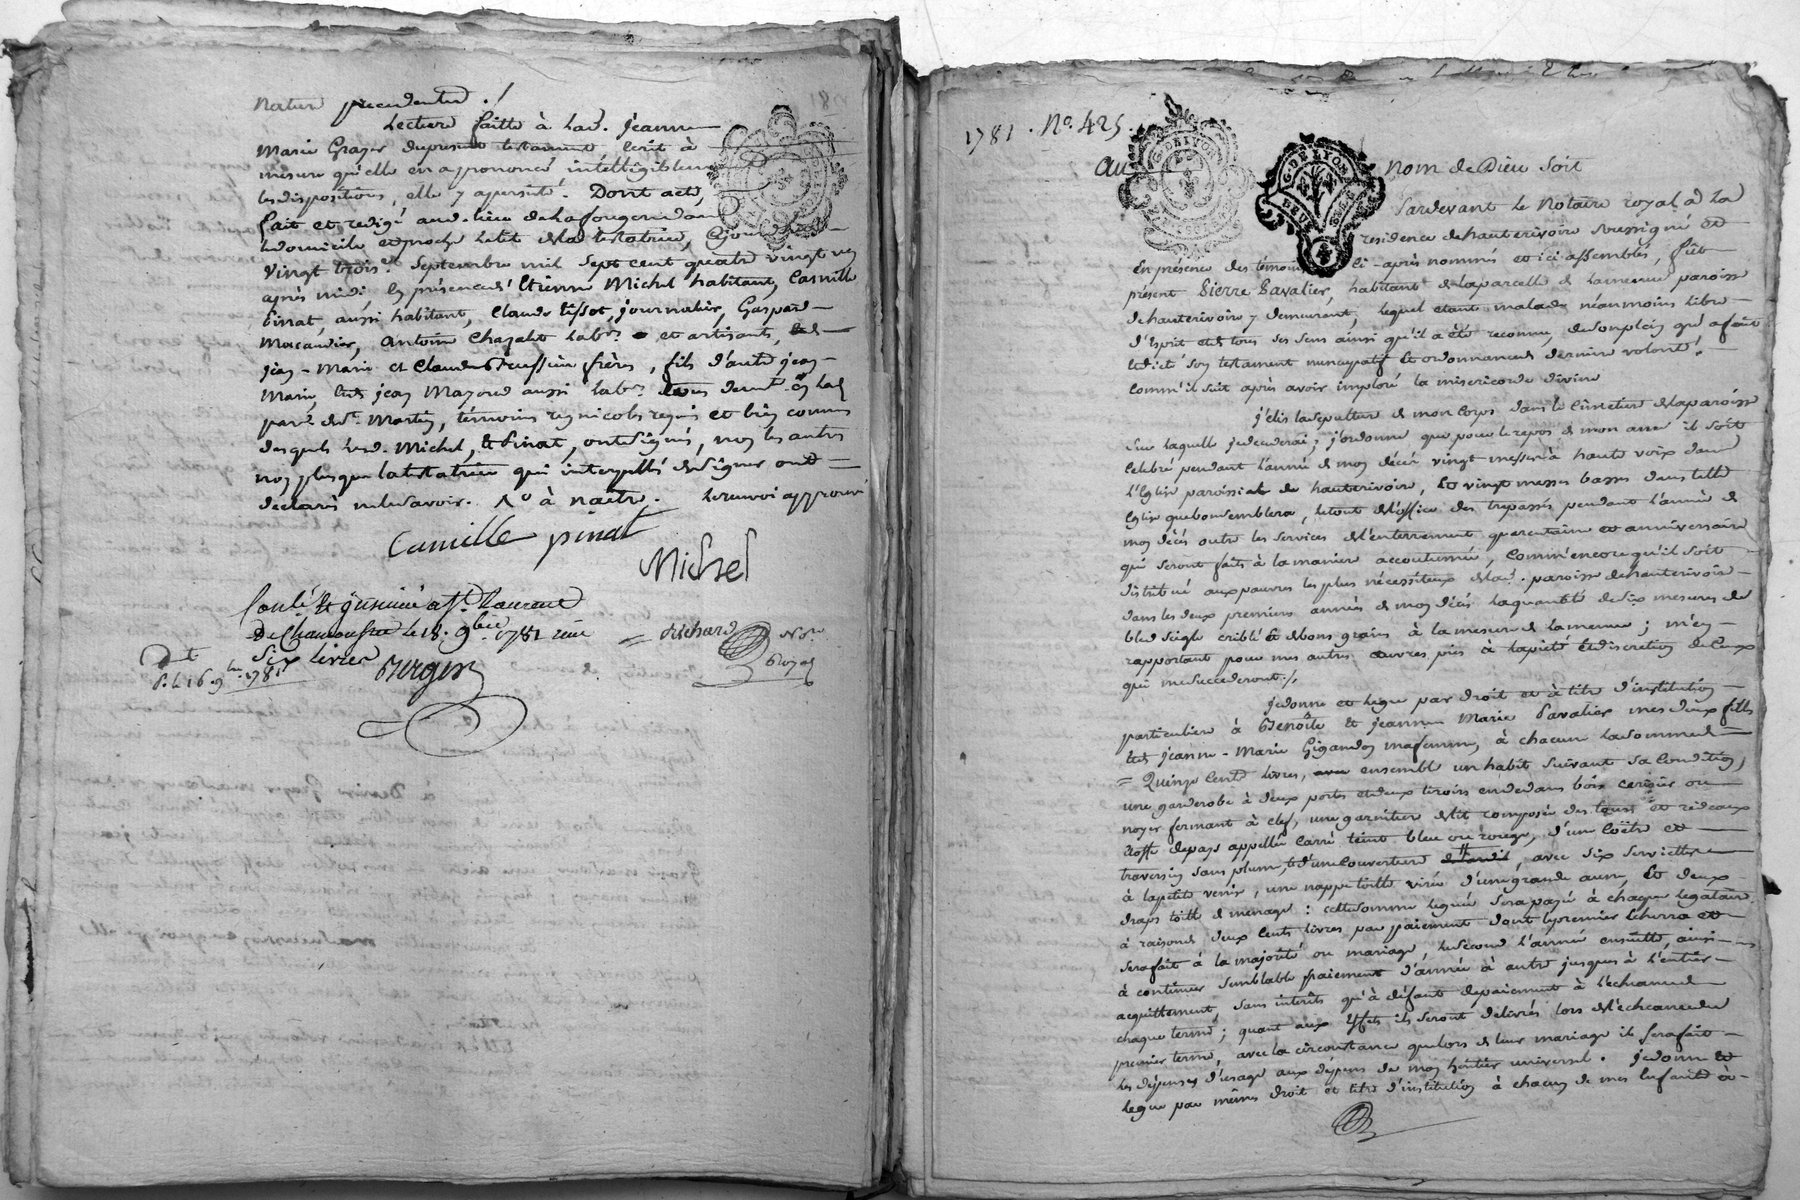 nature precedente ./
Lecture faitte à lad. jeanne
Marie Grayer du present testament écrit à
mesure qu'elle en a prononcé intelligiblement
les dispositions, elle y a persisté. Dont acte,
fait et redigé aud. lieu de la fougere dans
le domicile et proche le lit de la testatrice, ajourd'huy
vingt trois Septembre mil Sept cent quatre vingt un
après midi En présence d'Etienne Michel habitant, Camille
Pinat, aussi habitant, Claude tissot, journalier, Gaspard
Macaudier, Antoine Chazalet lab.rs et artisants,
jean-Marie et Claude frères, fils d'autre jean-
Marie, et de jean Mazord aussi lab.r tous demt. en lad.
par.e de St. Martin, témoins regnicoles requis et bien connus
desquels lesd. Michel, et Pinat, ont Signés, non les autres
non plus que la testatrice qui interpellés de Signer ont
declarés ne le Savoir. le renvoi approuvé
Camille pinat
Michel
Conlé et insinué à St. Laurent
De Chamousset le 18. 9bre 1781 reçu
Six livres
Berger
Richard Nre
Royal
1781. No. 425.
Au Nom de Dieu Soit
G. DE LYON
G. DE LYON
DEUX SOLS
4
Pardevant le Notaire royal à la
residence de hauterivoire Soussigné et
En présence des témoins ci-après nommés et ici assemblés, fût
présent Pierre Pavalier, habitant de la parcelle de la meme paroisse
de hauterivoire y demeurant, lequel etant malade néanmoins libre
d'Esprit et de tous ses Sens ainsi qu'il a été reconnu, de Son plein gré a fait
et dicté Son testament nuncupatif et ordonnance de derniere volonté,
comm'il Suit après avoir imploré la misericorde divine
j'élis la Sepulture de mon Corps dans le Cimetiere de la paroisse
Sur laquelle je decederai; j'ordonne que pour le repos de mon ame il Soit
Celebré pendant l'année de mon décès vingt messes à haute voix dans
l'Eglise paroissiale de hauterivoire, et vingt messes basses dans telle
Eglise que bon Semblera, le tout de l'office des trepassés pendant l'année de
mon décès outre les Services de l'enterrement quarentaine et anniversaire
qui Seront faits à la maniere accoutumée, Comm'encore qu'il Soit
distribué aux pauvres les plus nécessiteux de lad. paroisse de hauterivoire
dans les deux premieres années de mon décès la quantité de dix mesures de
bled Seigle criblé et de bons grains à la mesure de la meme; m'en
rapportant pour mes autres œuvres pies à la piété et discretion de Ceux
qui me Succederont./.
je donne et legue par droit et à titre d'institution
particuliere à Benoîte et jeanne Marie Pavalier mes deux filles
et de jeanne-Marie Gigandon ma femme, à chacune la Somme de
Quinze Cents livres, ensemble un habit Suivant Sa Condition,
une garderobe à deux portes et deux tiroirs en dedans bois cerisier ou
noyer fermant à clef, une garniture de lit composée des tours et rideaux
étoffe de pays appellée Carré teint bleu ou rouge, d'un Coëtre et
traversin Sans plume, et d'une Couverture, avec Six Serviettes
à la petite venise, une nappe toille virée d'une grande aune, et deux
draps toille de menage: cette Somme leguée Sera payée à chaque légataire
à raison de deux Cents livres par paiement dont le premier Echerra et
Sera fait à la majorité ou mariage, le Second l'année ensuitte, ainsi
à continuer Semblable paiement d'année à autre jusques à l'entier
acquittement, Sans interêts qu'à défaut de paiement à l'echeance de
chaque terme; quant aux Effets ils Seront delivrés lors de l'echeance du
premier terme, avec la circonstance que lors de leur mariage il Sera fait
les dépenses d'usage aux dépens de mon héritier universel. je donne et
legue par même droit et titre d'institution à chacun de mes Enfants à